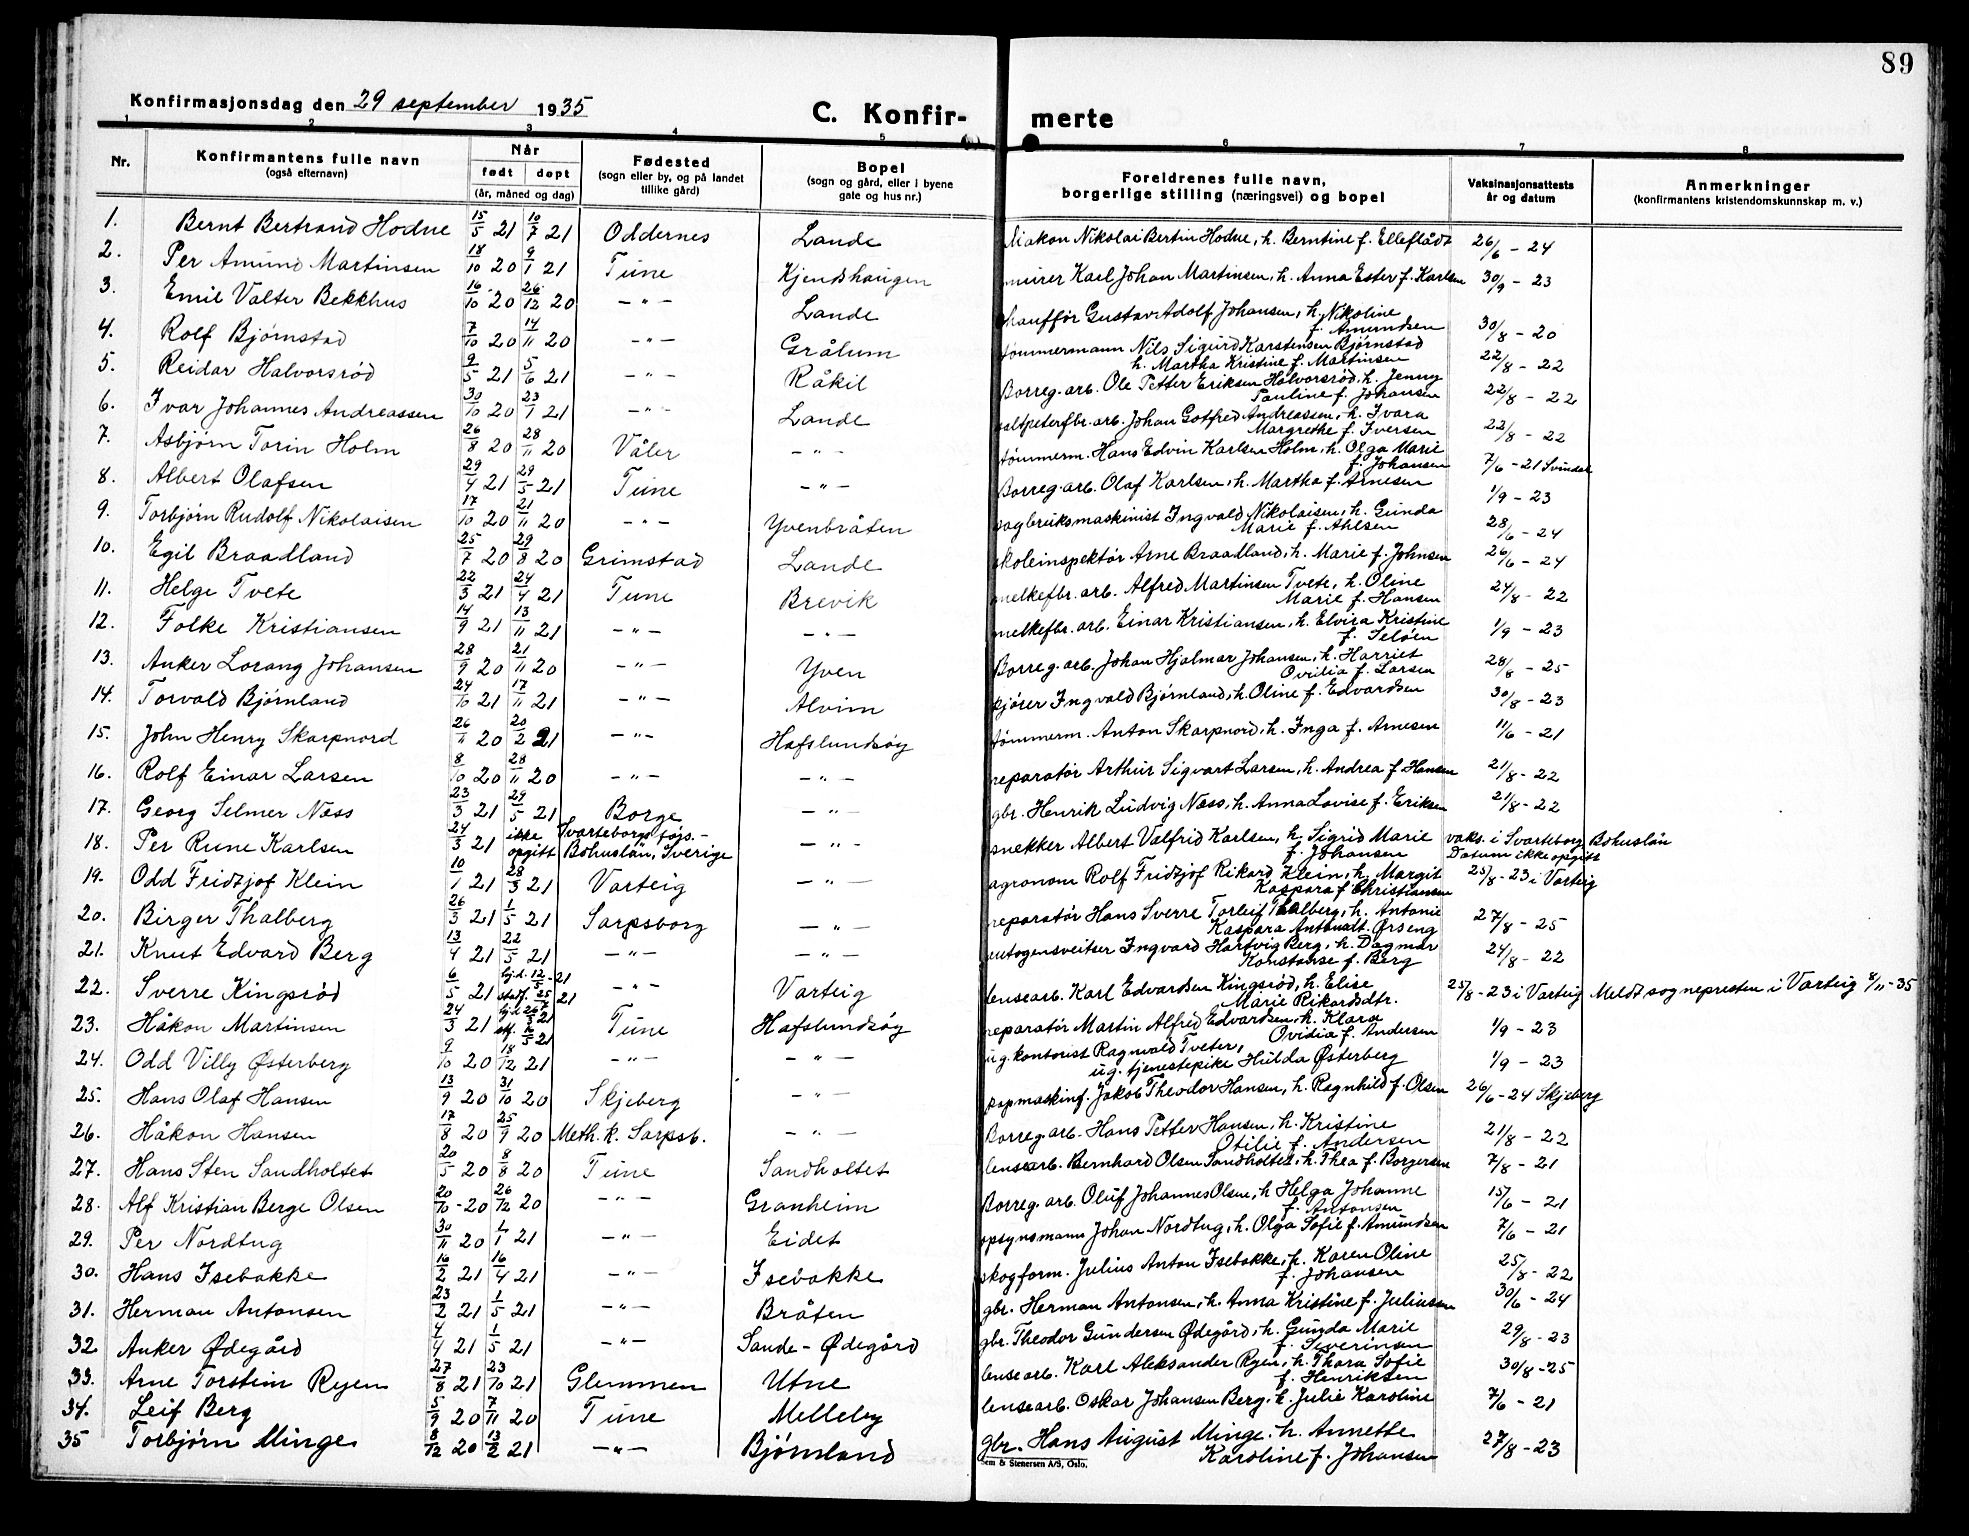 89
Konfirmasjonsdag den 29 september 1935
C. Konfir- merte
1 2 3 4 5 6 7 8
Nr.
Konfirmantens fulle navn
(også efternavn)
Når
født døpt
(år, måned og dag)
Fødested
(sogn eller by, og på landet
tillike gård)
Bopel
(sogn og gård, eller i byene
gate og hus nr.)
Foreldrenes fulle navn,
borgerlige stilling (næringsvei) og bopel
Vaksinasjonsattests
år og datum
Anmerkninger
(konfirmantens kristendomskunnskap m. v.)
1. Bernt Bertrand Hodne 15/5 21 10/7 21 Oddernes Lande diakon Nikolai Bertin Hodne, h. Berntine f. Elleflådt 26/6 - 24
2. Per Amund Martinsen 18/10 20 9/1 21 Tune Kjendshaugen murer Karl Johan Martinsen, h. Anna Ester f. Karlsen 30/9 - 23
3. Emil Valter Bekkhus 16/10 20 26/12 20 -"- Lande chauffør Gustav Adolf Johansen, h. Nikoline
f. Amundsen 30/8 - 20
4. Rolf Bjørnstad 7/10 20 14/11 20 -"- Grålum tømmermann Nils Sigurd Karstensen Bjørnstad
h. Martha Kristine f. Martinsen 22/8 - 22
5. Reidar Halvorsrød 9/5 21 5/6 21 -"- Råkil Borreg. arb. Ole Petter Eriksen Halvorsrød, h. Jenny
Pauline f. Johansen 22/8 - 22
6. Ivar Johannes Andreassen 30/10 20 23/1 21 -"- Lande saltpeterfbr. arb. Johan Gotfred Andreassen, h. Ivara
Margrethe f. Iversen 22/8 - 22
7. Asbjørn Torin Holm 26/8 20 28/11 20 Våler -"- tømmerm. Hans Edvin Karlsen Holm, h. Olga Marie
f. Johansen 7/6 - 21 Svindal
8. Albert Olafsen 29/4 21 29/5 21 Tune -"- Borreg. arb. Olaf Karlsen, h. Martha f. Arnesen 1/9 - 23
9. Torbjørn Rudolf Nikolaisen 17/10 20 21/11 20 -"- Yvenbråten sagbruksmaskinist Ingvald Nikolaisen, h. Gunda
Marie f. Ahlsen 28/6 - 24
10. Egil Braadland 25/7 20 29/8 20 Grimstad Lande skoleinspektør Arne Braadland, h. Marie f. Johnsen 26/6 - 24
11. Helge Tvete 22/3 21 24/4 21 Tune Brevik melkefbr. arb. Alfred Martinsen Tvete, h. Oline
Marie f. Hansen 24/8 - 22
12. Folke Kristiansen 14/9 21 13/11 21 -"- -"- melkefbr. arb. Einar Kristiansen, h. Elvira Kristine
f. Seløen 1/9 - 23
13. Anker Lorang Johansen 28/9 20 21/11 20 -"- Yven Borreg. arb. Johan Hjalmar Johansen, h. Harriet
Ovilia f. Larsen 28/6 - 25
14. Torvald Bjørnland 24/10 21 17/11 21 -"- Alvim kjører Ingvald Bjørnland, h. Oline f. Edvardsen 30/8 - 23
15. John Henry Skarpnord 26/11 20 20/2 21 -"- Hafslundsøy tømmerm. Anton Skarpnord, h. Inga f. Arnesen 11/6 - 21
16. Rolf Einar Larsen 8/10 20 28/11 20 -"- -"- reparatør Arthur Sigvart Larsen, h. Andrea f. Hansen 21/8 - 22
17. Georg Selmer Næss 23/3 21 29/5 21 Borge -"- gbr. Henrik Ludvig Næss, h. Anna Lovise f. Eriksen 21/8 - 22
18. Per Rune Karlsen 24/3 21 ikke opgitt Svarteborgs förs.-
Bohuslän, Sverige -"- snekker Albert Valfrid Karlsen, h. Sigrid Marie
f. Johansen vaks. i Svarteborg Bohuslän
Datum ikke opgitt
19. Odd Fridtjof Klein 10/1 21 28/3 21 Varteig -"- agronom Rolf Fridtjof Rikard Klein, h. Margit
Kaspara f. Christiansen 25/8 - 23 i Varteig
20. Birger Thalberg 26/3 21 1/5 21 Sarpsborg -"- reparatør Hans Sverre Torleif Thalberg, h. Antonie
Kaspara Antonsdt. Ørseng 27/8 - 25
21. Knut Edvard Berg 13/4 21 22/5 21 -"- -"- autogensveiser Ingvard Hartvig Berg, h. Dagmar
Konstanse f. Berg 24/8 - 22
22. Sverre Kingsrød 6/5 21 hj.d. 12/5 - 21 stadf. 25/ 21 -"- Varteig lensearb. Karl Edvardsen Kingsrød, h. Elise
Marie Rikardsdtr. 25/8 - 23 i Varteig Meldt sognepresten i Varteig 8/11 - 35
23. Håkon Martinsen 24/3 21 hj.d. 26/3 21 stf. /5 21 Tune Hafslundsøy reparatør Martin Alfred Edvardsen, h. Klara
Ovidia f. Andersen 1/9 - 23
24. Odd Villy Østerberg 9/10 20 18/12 21 -"- -"- ug. kontorist Ragnvald Tveter,
ug. tjenestepike Hulda Østerberg 1/9 - 23
25. Hans Olaf Hansen 13/9 20 31/10 20 Skjeberg -"- papmaskinf. Jakob Theodor Hansen, h. Ragnhild f. Olsen 26/6 - 24 Skjeberg
26. Håkon Hansen 17/8 20 25/9 20 Meth. k. Sarpsb. -"- Borreg. arb. Hans Petter Hansen, h. Kristine
Otilie f. Andersen 21/8 - 22
27. Hans Sten Sandholtet 20/5 20 8/8 20 Tune Sandholtet lensearb. Bernhard Olsen Sandholtet, h. Thea f. Borgersen 7/8 - 21
28. Alf Kristian Berge Olsen 20/10 - 20 26/12 20 -"- Granheim Borreg. arb. Oluf Johannes Olsen, h. Helga Johanne
f. Antonsen 15/6 - 21
29. Per Nordtug 30/11 20 1/1 21 -"- Eidet opsynsmann Johan Nordtug, h. Olga Sofie f. Amundsen 7/6 - 21
30. Hans Isebakke 16/2 21 16/4 21 -"- Isebakke skogform. Julius Anton Isebakke, h. Karen Oline
f. Johansen 25/8 - 22
31. Herman Antonsen 23/2 21 1/5 21 -"- Bråten gbr. Herman Antonsen, h. Anna Kristine f. Juliussen 30/6 - 24
32. Anker Ødegård 4/4 21 1/5 21 -"- Sande - Ødegård gbr. Theodor Gundersen Ødegård, h. Gunda Marie
f. Severinsen 29/8 - 23
33. Arne Torstein Ryen 27/8 21 23/10 21 Glemmen Utne lensearb. Karl Aleksander Ryen, h. Thora Sofie
f. Henriksen 30/8 - 25
34. Leif Berg 5/9 20 7/11 20 Tune Melleby lensearb. Oskar Johansen Berg, h. Julie Karoline 7/6 - 21
35 Torbjørn Minge 8/12 20 13/2 21 -"- Bjørnland gbr. Hans August Minge, h. Annette
Karoline f. Johansen 27/8 - 23
Sem & Stenersen A/S, Oslo.